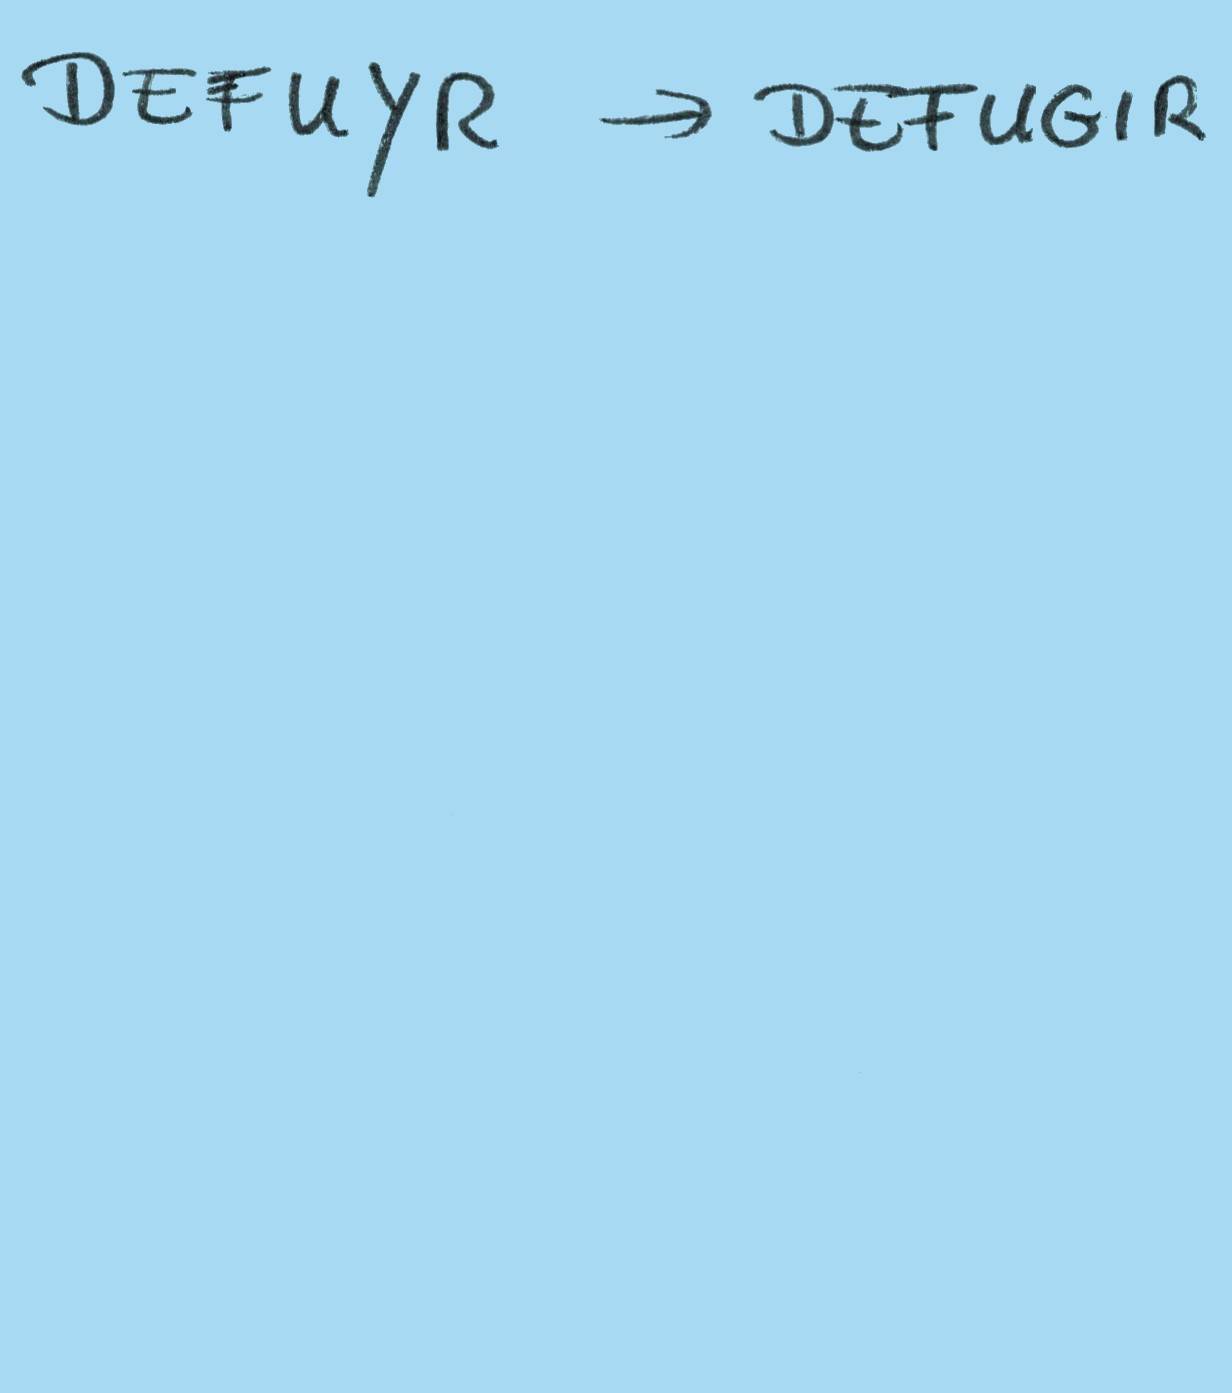 DEFUYR → DEFUGIR